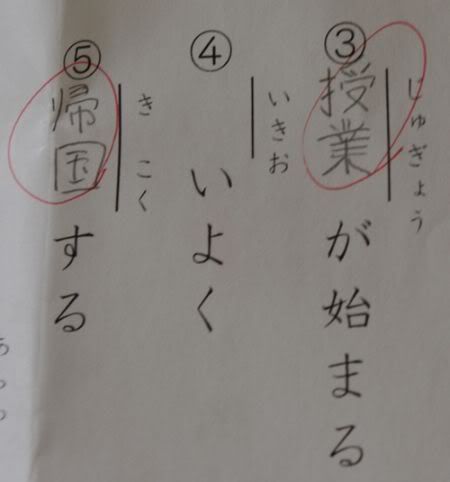 ③授業が始まる
じゅぎょう
④いよく
いきお
⑤帰国する
きこく